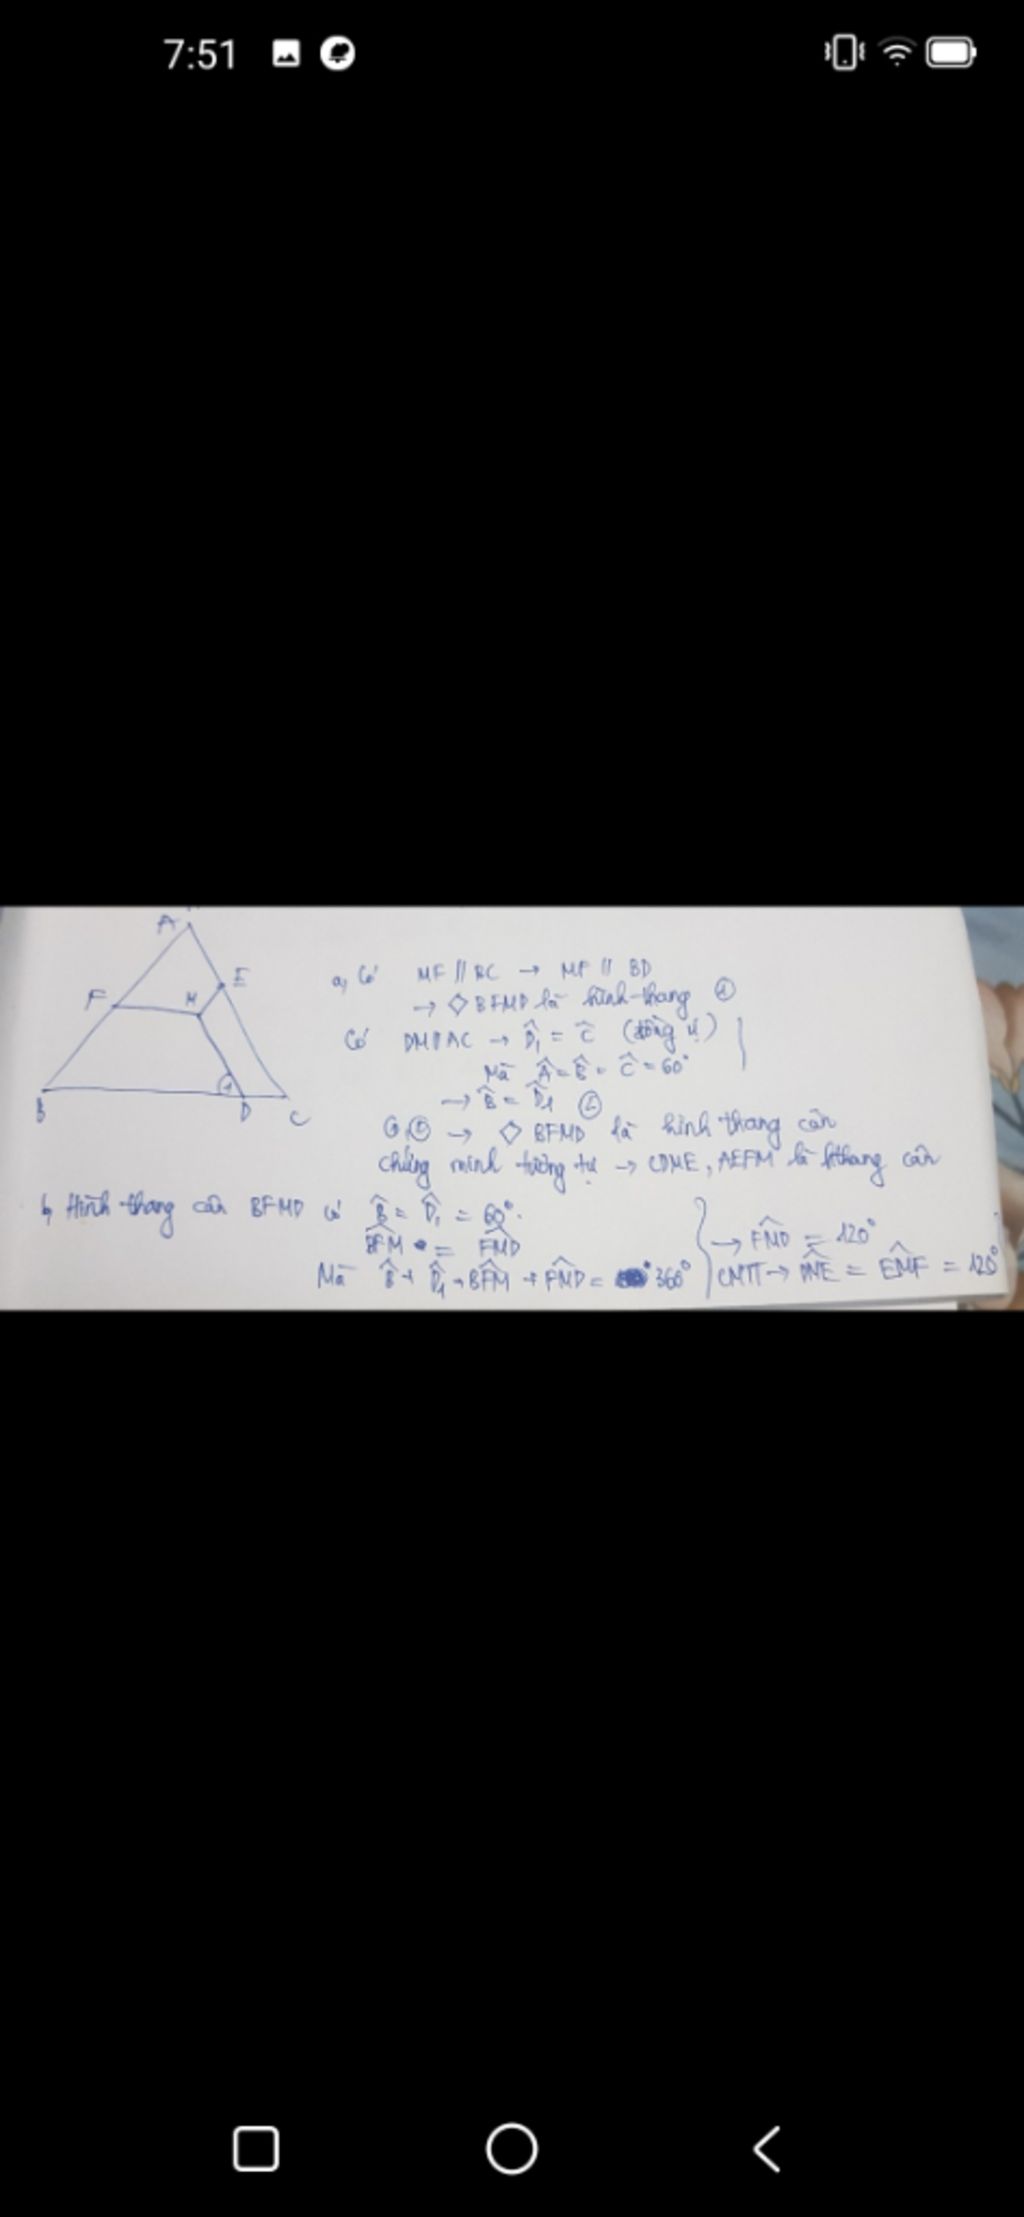 7:51
A
E
F
M
a, Có MF // BC → MF // BD
→ ◇ BFMD là hình thang ①
Có DM // AC → D̂₁ = Ĉ (đồng vị)
Mà Â = B̂ = Ĉ = 60°
→ B̂ = D̂₁ ②
1
B
D
C
①, ② → ◇ BFMD là hình thang cân
Chứng minh tương tự → CDME, AEFM là hthang cân
b, Hình thang cân BFMD có B̂ = D̂₁ = 60°.
BFM̂ = FMD̂
Mà B̂ + D̂₁ + BFM̂ + FMD̂ = 360°
→ FMD̂ = 120°
CMTT → DME = EMF̂ = 120°